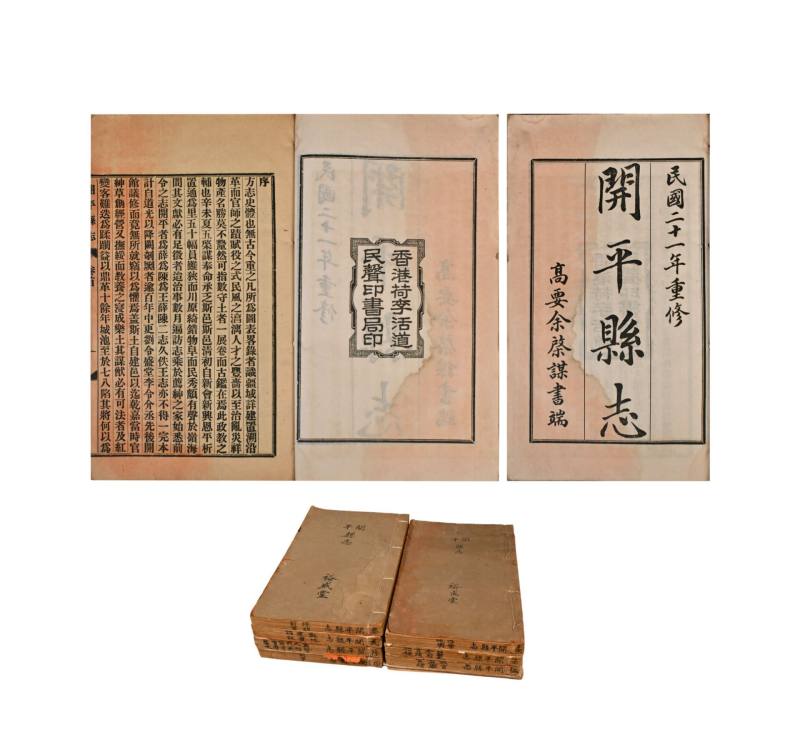 民國二十一年重修
開平縣志
高要余棨謀書端
香港荷李活道
民聲印書局印
序
方志史體也無古今重之凡所為圖表畧錄者識疆域詳建置溯沿
革而官師之蹟賦役之式民風之淳漓人才之豐嗇以至治亂災祥
物產名勝莫不釐然可指數守土者一展卷而古鑑在焉此政教之
輔也辛未夏五棨謀奉命承乏斯邑邑清初自新會新興恩平析
置通為里五十幅員雖狹而川原綺錯物阜而民秀頗有聲於嶺海
間其文獻必有足徵者蒞治事數月遍訪志乘於薦紳之家始悉前
令之志開平者為薛為陳為王薛陳二志久佚王志亦不得一完本
計自道光以降闕者逾百年中更劉令盛堂李令分丞先後開
館議修而竟無所就竊以為懼焉蓋斯土自建邑以迄乾嘉當時官
紳草創經營又撫綏而教養之寖成樂土其謀猷必有可法者及紅
變客難迭為蹂躪益以鼎革十餘年城池至於七八陷其將何以為
開平縣志 卷首
開平縣志
裕成堂
開平縣志
裕成堂
開平縣志
開平縣志
開平縣志
開平縣志
開平縣志